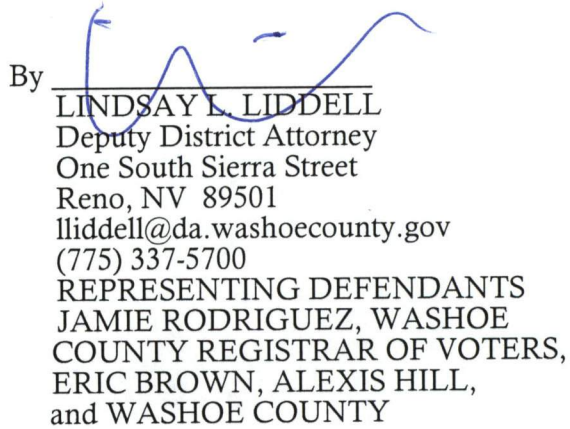 By
LINDSAY L. LIDDELL
Deputy District Attorney
One South Sierra Street
Reno, NV 89501
lliddell@da.washoecounty.gov
(775) 337-5700
REPRESENTING DEFENDANTS
JAMIE RODRIGUEZ, WASHOE
COUNTY REGISTRAR OF VOTERS,
ERIC BROWN, ALEXIS HILL,
and WASHOE COUNTY